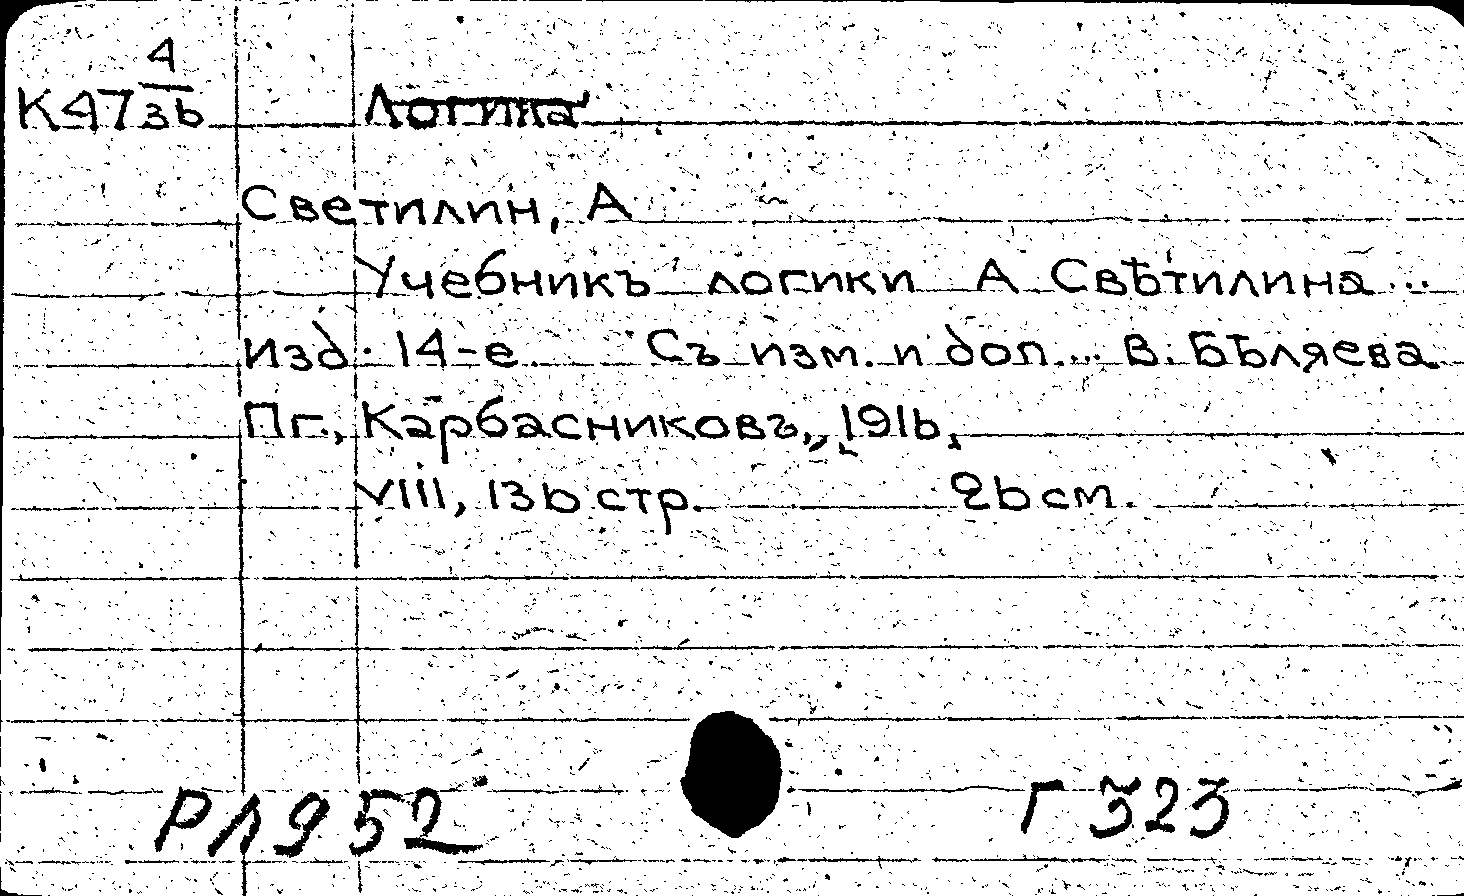 К47 4/36 Логика
Светилин, А
Учебникъ логики А Свѣтилина...
изд. 14-е. Съ изм. и доп... В. Бѣляева
Пг., Карбасниковъ, 1916,
VIII, 136 стр. 26 см.
РЛ952 Г 323